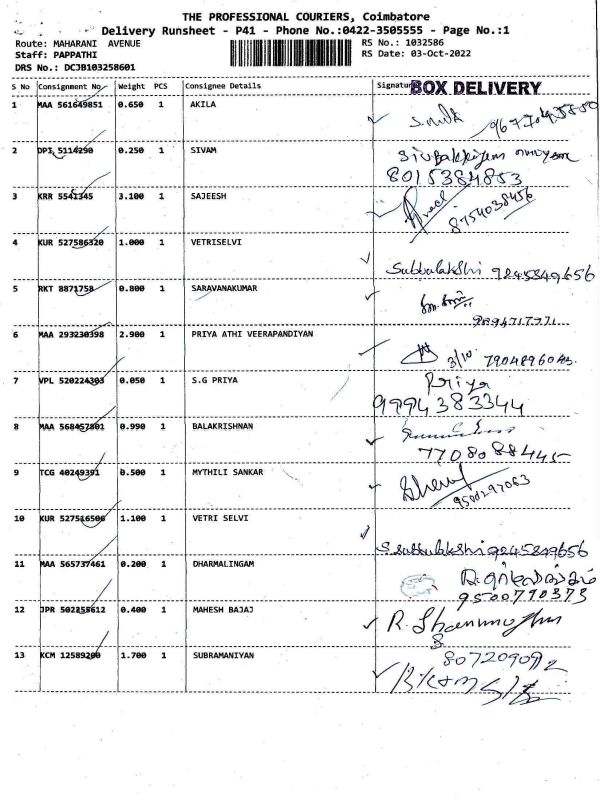 THE PROFESSIONAL COURIERS, Coimbatore
Delivery Runsheet - P41 - Phone No.:0422-3505555 - Page No.:1
Route: MAHARANI AVENUE RS No.: 1032586
Staff: PAPPATHI RS Date: 03-Oct-2022
DRS No.: DCJB103258601
S No Consignment No. Weight PCS Consignee Details Signature BOX DELIVERY
1 MAA 561649851 0.650 1 AKILA
2 DPI 5114290 0.250 1 SIVAM
8015384853
3 KRR 5541345 3.100 1 SAJEESH
8754038456
4 KUR 527586320 1.000 1 VETRISELVI
Subbulakshi 9245849656
5 RKT 8871758 0.800 1 SARAVANAKUMAR
6 MAA 293230398 2.900 1 PRIYA ATHI VEERAPANDIYAN
3/10
7 VPL 520224303 0.050 1 S.G PRIYA Priya
9994383344
8 MAA 568457801 0.990 1 BALAKRISHNAN
7708088445
9 TCG 40249391 0.500 1 MYTHILI SANKAR
9500297063
10 KUR 527516506 1.100 1 VETRI SELVI
S.subbulakshi 9245849656
11 MAA 565737461 0.200 1 DHARMALINGAM
9500770373
12 JPR 502255612 0.400 1 MAHESH BAJAJ
13 KCM 12589200 1.700 1 SUBRAMANIYAN
8072090912